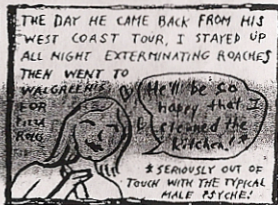 THE DAY HE CAME BACK FROM HIS
WEST COAST TOUR, I STAYED UP
ALL NIGHT EXTERMINATING ROACHES
THEN WENT TO
WALGREENS
FOR
He'll be so
happy that I
cleaned the
kitchen!*
* SERIOUSLY OUT OF
TOUCH WITH THE TYPICAL
MALE PSYCHE!